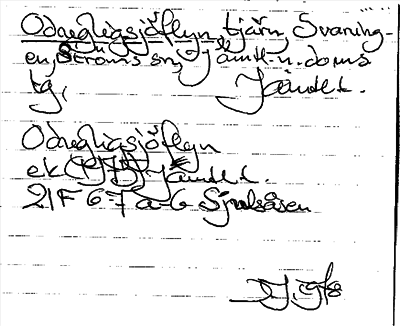 Odręgligsjöflyn, tjärn, Svaning-
en, Ströms sn, Jämtl. n. doms
tg, Jämtl.
Odręgligsjöflyn
ek (1971) Jämtl.
21F 6-7 a-b Sjulsåsen